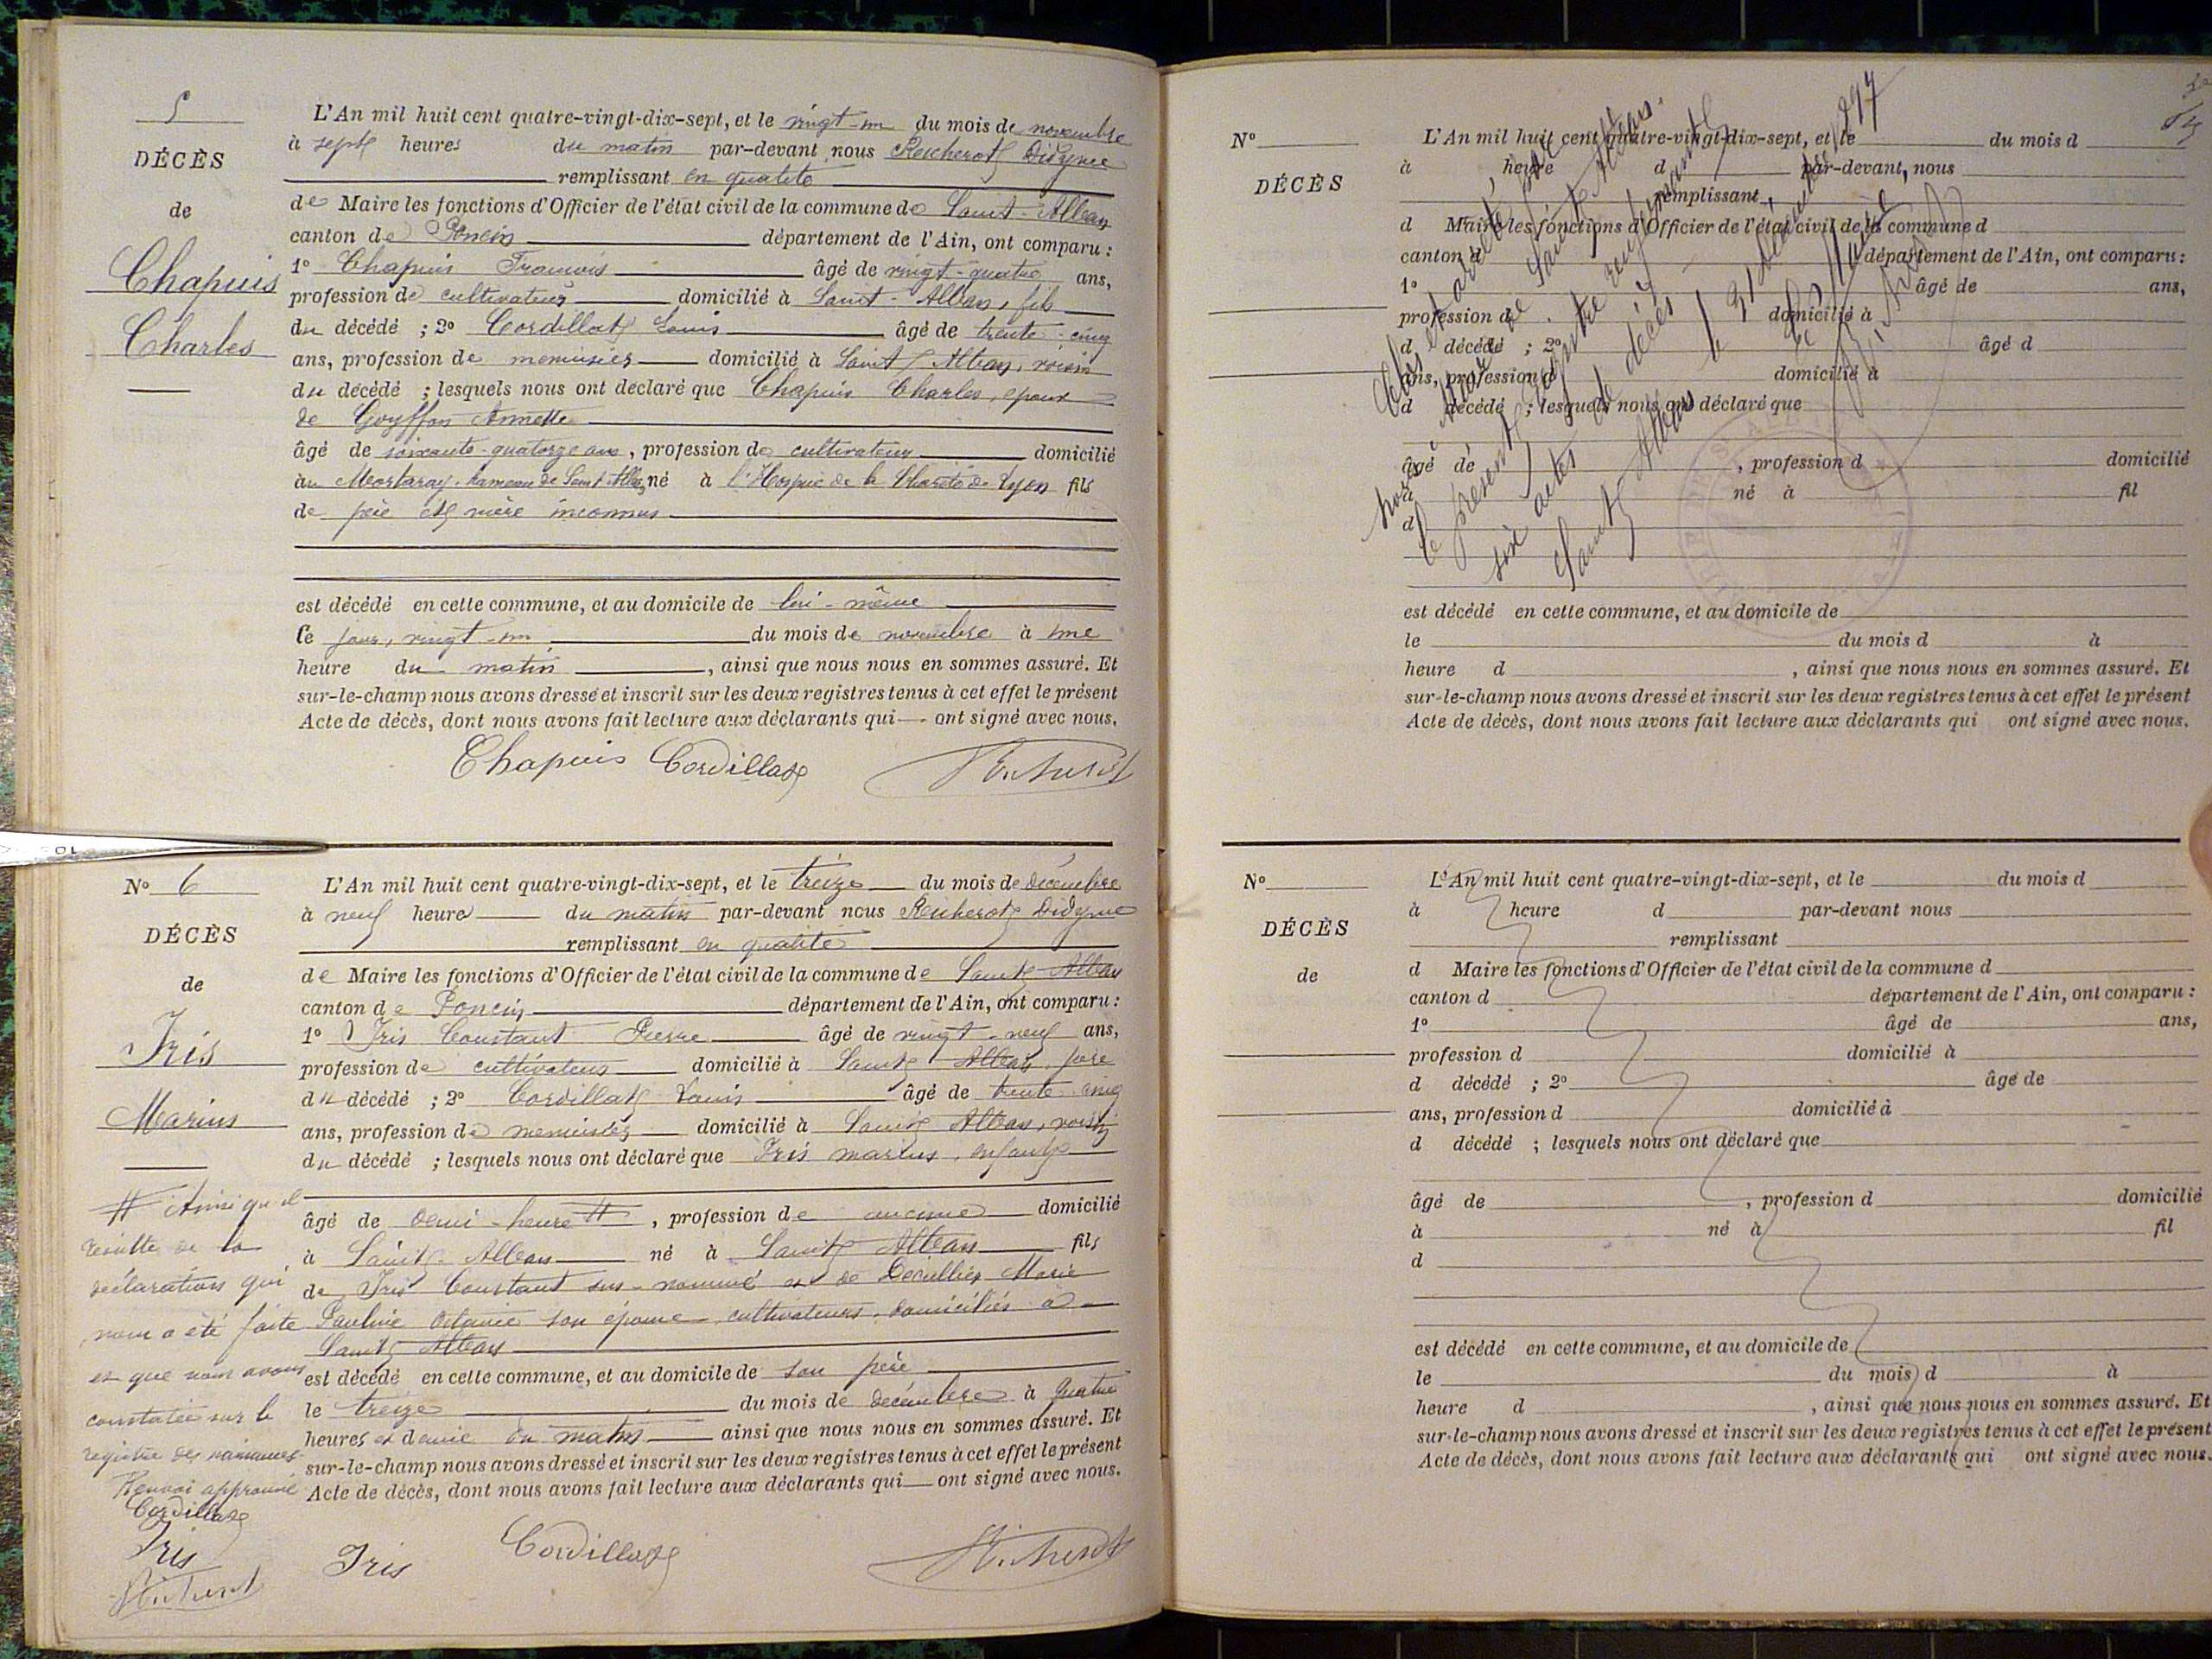 5
DÉCÈS
de
Chapuis
Charles
L'An mil huit cent quatre-vingt-dix-sept, et le vingt-un du mois de novembre
à sept heures du matin par-devant nous Reicherot Didyme
remplissant en qualité
de Maire les fonctions d'Officier de l'état civil de la commune de Saint-Alban
canton de Poncin département de l'Ain, ont comparu :
1º Chapuis François âgé de vingt-quatre ans,
profession de cultivateur domicilié à Saint-Alban, fils
du décédé ; 2º Cordillat Louis âgé de trente-cinq
ans, profession de menuisier domicilié à Saint Alban, voisin
du décédé ; lesquels nous ont déclaré que Chapuis Charles, époux
de Goyffon Annette
âgé de soixante-quatorze ans, profession de cultivateur domicilié
au hameau de Saint Alban, né à l'Hospice de la Charité de Lyon fils
de père et mère inconnus
est décédé en cette commune, et au domicile de lui-même
le jour, vingt-un du mois de novembre à une
heure du matin, ainsi que nous nous en sommes assuré. Et
sur-le-champ nous avons dressé et inscrit sur les deux registres tenus à cet effet le présent
Acte de décès, dont nous avons fait lecture aux déclarants qui — ont signé avec nous.
Chapuis Cordillat
Nº 6
DÉCÈS
de
Iris
Marius
L'An mil huit cent quatre-vingt-dix-sept, et le treize du mois de décembre
à neuf heures du matin par-devant nous Reicherot Didyme
remplissant en qualité
de Maire les fonctions d'Officier de l'état civil de la commune de Saint-Alban
canton de Poncin département de l'Ain, ont comparu :
1º Iris Constant Pierre âgé de vingt-neuf ans,
profession de cultivateur domicilié à Saint-Alban, père
du décédé ; 2º Cordillat Louis âgé de trente-cinq
ans, profession de menuisier domicilié à Saint-Alban, voisin
du décédé ; lesquels nous ont déclaré que Iris marius, enfant
âgé de demi-heure #, profession de aucune domicilié
à Saint-Alban né à Saint Alban fils
de Iris Constant sus-nommé et de Marie
Pauline son épouse, cultivateurs, domiciliés à
Saint Alban
est décédé en cette commune, et au domicile de son père
le treize du mois de décembre à quatre
heures et demie du matin ainsi que nous nous en sommes assuré. Et
sur-le-champ nous avons dressé et inscrit sur les deux registres tenus à cet effet le présent
Acte de décès, dont nous avons fait lecture aux déclarants qui — ont signé avec nous.
# Ainsi qu'il
résulte de la
déclaration qui
nous a été faite
et que nous avons
constatée sur le
registre des naissances
Renvoi approuvé
Cordillat
Iris
Iris Cordillat
Nº
DÉCÈS
L'An mil huit cent quatre-vingt-dix-sept, et le du mois d
à heure d par-devant, nous
remplissant
d Maire les fonctions d'Officier de l'état civil de la commune d
canton d département de l'Ain, ont comparu :
1º âgé de ans,
profession d domicilié à
d décédé ; 2º âgé d
ans, profession d domicilié à
d décédé ; lesquels nous ont déclaré que
âgé de , profession d domicilié
à né à fil
d
est décédé en cette commune, et au domicile de
le du mois d à
heure d , ainsi que nous nous en sommes assuré. Et
sur-le-champ nous avons dressé et inscrit sur les deux registres tenus à cet effet le présent
Acte de décès, dont nous avons fait lecture aux déclarants qui ont signé avec nous.
Clos et arrêté par
Maire de Saint Alban
le présent registre renfermant
six actes de décès
Saint Alban le 31 décembre 1897
Le Maire
Nº
DÉCÈS
de
L'An mil huit cent quatre-vingt-dix-sept, et le du mois d
à heure d par-devant nous
remplissant
d Maire les fonctions d'Officier de l'état civil de la commune d
canton d département de l'Ain, ont comparu :
1º âgé de ans,
profession d domicilié à
d décédé ; 2º âgé de
ans, profession d domicilié à
d décédé ; lesquels nous ont déclaré que
âgé de , profession d domicilié
à né à fil
d
est décédé en cette commune, et au domicile de
le du mois d à
heure d , ainsi que nous nous en sommes assuré. Et
sur-le-champ nous avons dressé et inscrit sur les deux registres tenus à cet effet le présent
Acte de décès, dont nous avons fait lecture aux déclarants qui ont signé avec nous.